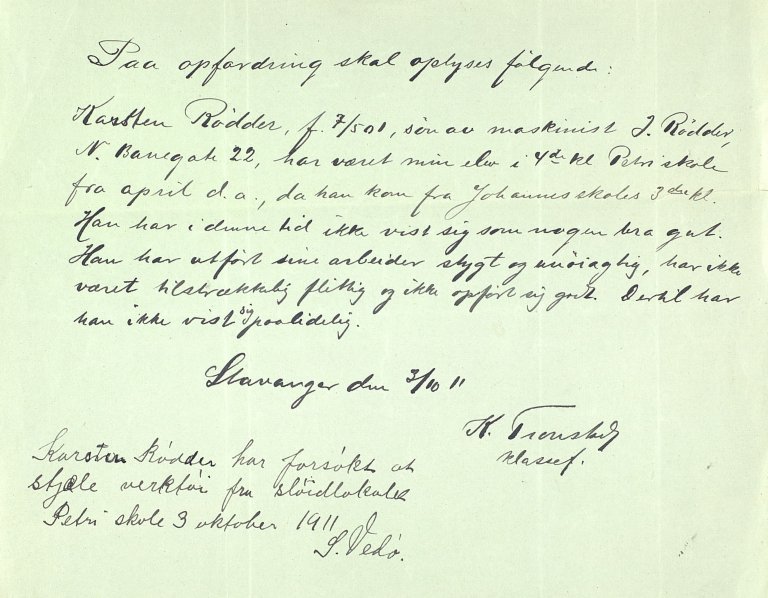 Paa opfordring skal oplyses følgende:
Karsten Rödder, f. 7/5 01, søn av maskinist J. Rödder,
N. Banegate 22, har været min elev i 4de kl Petri skole
fra april d. a., da han kom fra Johannes skoles 3die kl.
Han har i denne tid ikke vist sig som nogen bra gut.
Han har utført sine arbeider stygt og unöiagtig, har ikke
været tilstrækkelig flittig og ikke opført sig godt. Dertil har
han ikke vist sig paalidelig.
Stavanger den 3/10 11
K. Tronstad
klassef.
Karsten Rödder har forsøkt at
stjæle verktöi fra slöidlokalet
Petri skole 3 oktober 1911
S. Vedö.